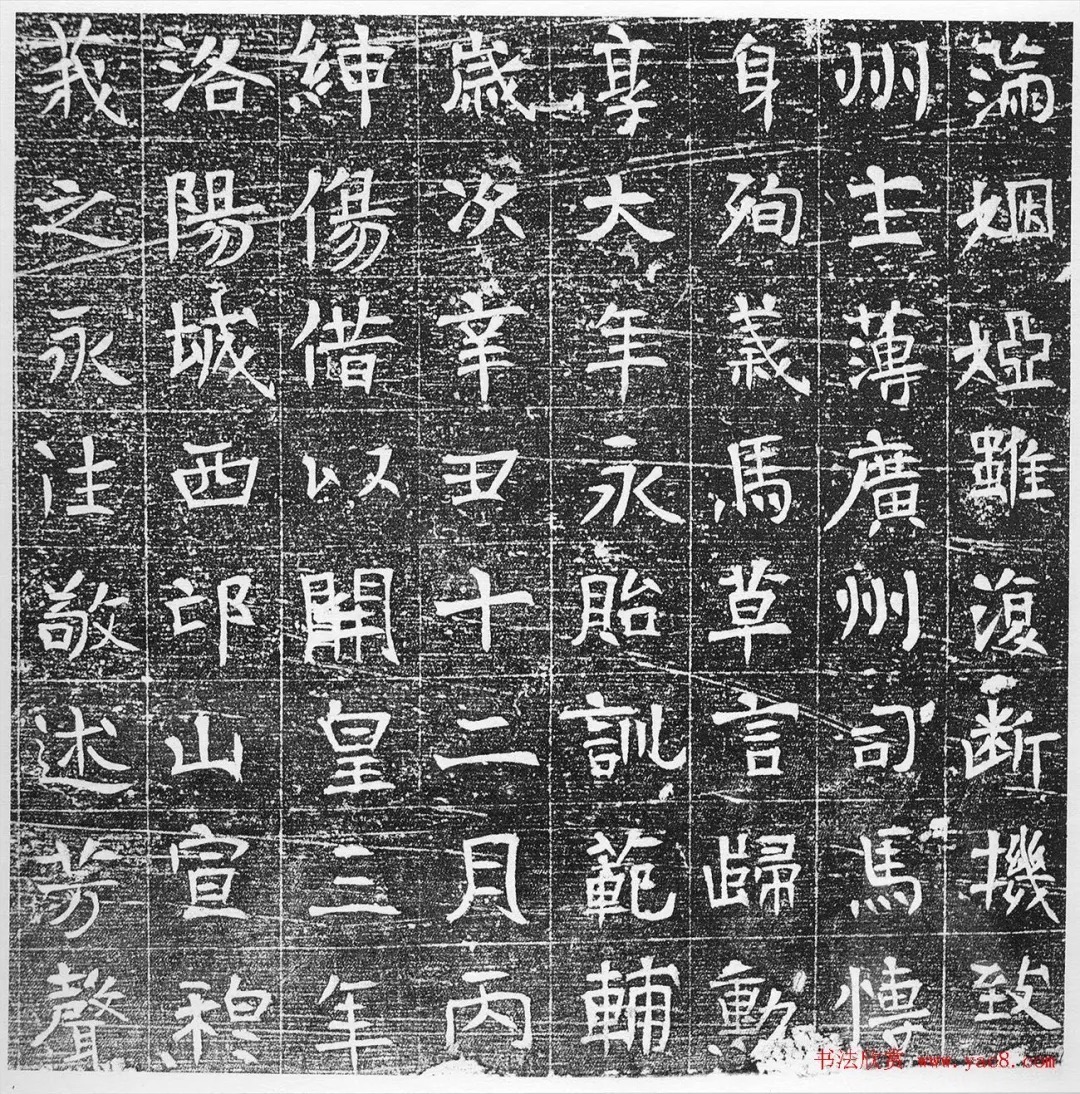 滿姻婭雖復斷機致
州主薄廣州司馬愽
身殉義馬草言歸勳
享大年永貽訓範輔
歲次辛丑十二月丙
紳傷借以開皇三年
洛陽城西邙山宣穆
義之永注敬述芳聲
书法欣赏 www.yac8.com